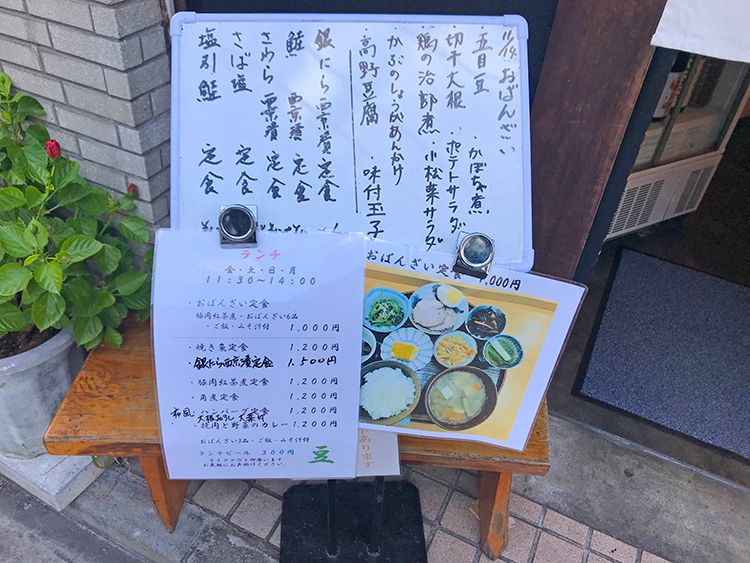 11/14 おばんざい
五目豆 ・かぼちゃ煮
切干大根 ・ポテトサラダ
鶏の治部煮 ・小松菜サラダ
かぶのしょうがあんかけ
高野豆腐 ・味付玉子
銀だら西京漬定食
鮭 西京漬 定食
さわら 西京漬 定食
さば塩 定食
塩引鮭 定食
ランチ
金・土・日・月
11:30~14:00
・おばんざい定食
豚肉紅茶煮・おばんざい6品
・ご飯・みそ汁付 1,000円
・焼き魚定食 1,200円
銀だら西京漬定食 1,500円
・豚肉紅茶煮定食 1,200円
・角煮定食 1,200円
和風・ハンバーグ定食 1,200円
大根おろし 大葉付
・挽肉と野菜のカレー 1,200円
おばんざい3品・ご飯・みそ汁付
ランチビール 300円
テイクアウトの用意います
お気軽にお声かけ下さい
豆
おばんざい定食 1,000円
あります